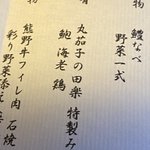 物
鱧なべ
野菜一式
肴
丸茄子の田楽 特製み
鮑 海老 鶏
物
熊野牛フィレ肉 石焼
彩り野菜添え